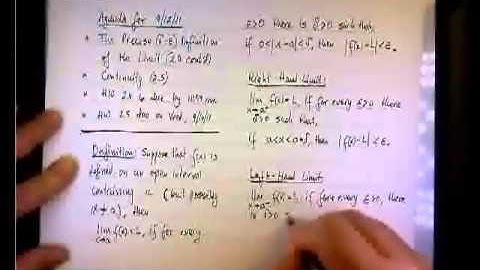 Agenda for 9/12/11
* The Precise (δ-ε) Definition
of the Limit (2.0 cont'd)
* Continuity (2.5)
* HW 2.5 is due by 11:59 pm
* HW 2.5 due on Wed.,
Definition: Suppose that f(x) is
defined on an open interval
containing a (but possibly
x≠a), then
lim f(x)=L, if for every
x→a
ε>0 there is δ>0 such that
if 0<|x-a|<δ, then |f(x)-L|<ε.
Right-Hand Limit:
lim f(x)=L, if for every ε>0 there
x→a⁺
δ>0 such that
if a<x<a+δ, then |f(x)-L|<ε.
Left-Hand Limit:
lim f(x)=L, if for every ε>0, there
x→a⁻
is δ>0